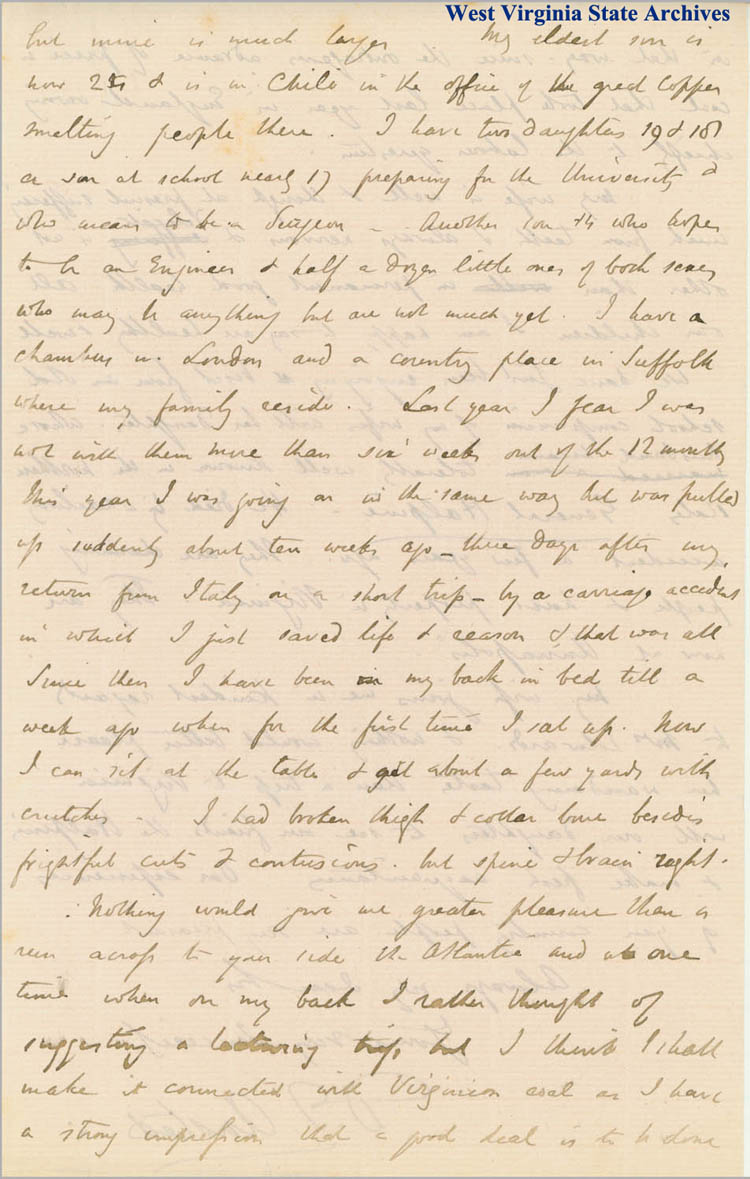 West Virginia State Archives
but mine is much larger My eldest son is
now & is in Chili in the office of the great Copper
smelting people there. I have two daughters 19 & 18
a son at school nearly 17 preparing for the University &
who means to be a Surgeon – Another son 14 who hopes
to be an Engineer & half a dozen little ones of both sexes
who may be anything but are not much yet. I have a
chambers in London and a country place in Suffolk
where my family reside. Last year I fear I was
not with them more than six weeks out of the 12 months
This year I was going on in the same way but was pulled
up suddenly about ten weeks ago – three days after my
return from Italy on a short trip – by a carriage accident
in which I just saved life & reason & that was all
Since then I have been on my back in bed till a
week ago when for the first time I sat up. Now
I can sit at the table & get about a few yards with
crutches – I had broken thigh & collar bone besides
frightful cuts & contusions. but spine & brain right.
Nothing would give me greater pleasure than a
run across to your side the Atlantic and at one
time when on my back I rather thought of
suggesting a lecturing trip but I think I shall
make it connected with Virginian coal as I have
a strong impression that a good deal is to be done